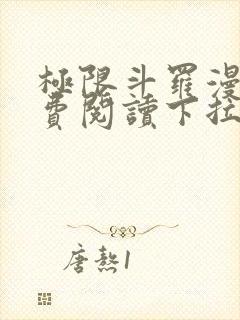 極限斗羅漫
費閱讀下拉
唐熬1